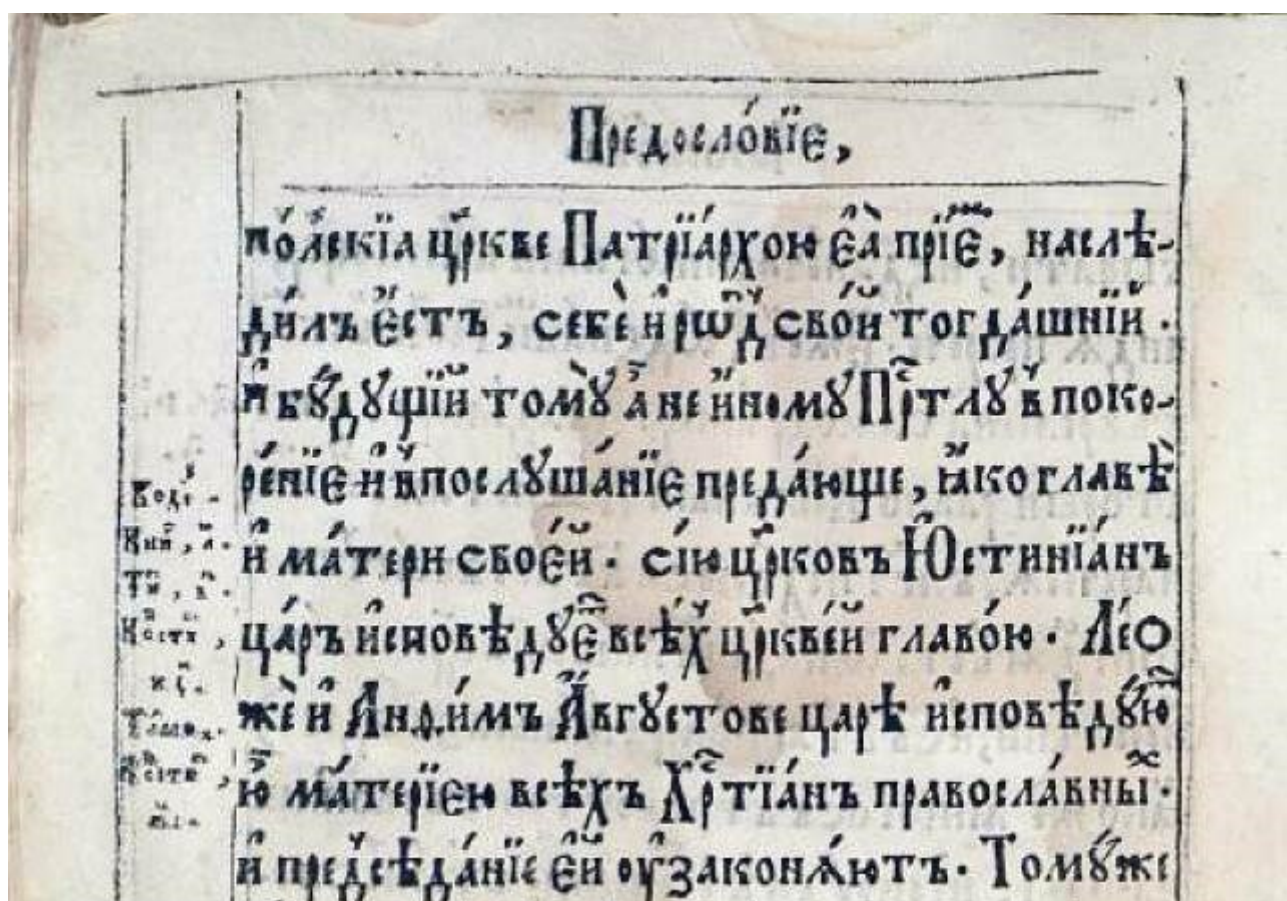 Предосло́вїе,
по́лскїѧ цр҃кве Патрїа́рхою є҆ѧ̀ прїе́м̾, наслѣ-
ди́лъ є҆́стъ, себѐ и҆ рѡ́д свой тогда́шнїй .
и҆ бꙋ́дꙋщїй томꙋ̀ а҆ не и҆́нномꙋ Прⷭ҇тлꙋ в поко-
ре́нїе и҆ в послꙋша́нїе преда́юще, ꙗ҆́ко главѣ̀
и҆ ма́тери своє́й . сїю̀ цр҃ковъ Ю҆стинїа́нъ
ца́ръ и҆сповѣ́дꙋєт всѣ́х цр҃кве́й главо́ю . Ле́о
жѐ и҆ А҆нѳи́мъ А҆́вгꙋстове царѣ̀ и҆сповѣ́дꙋю
ю҆̀ ма́терїею всѣ́хъ Хрⷭ҇тїа́нъ правосла́вны̾ .
и҆ пред̾сѣда́нїе є҆́й оу҆законѧ́ютъ . Томꙋ́же